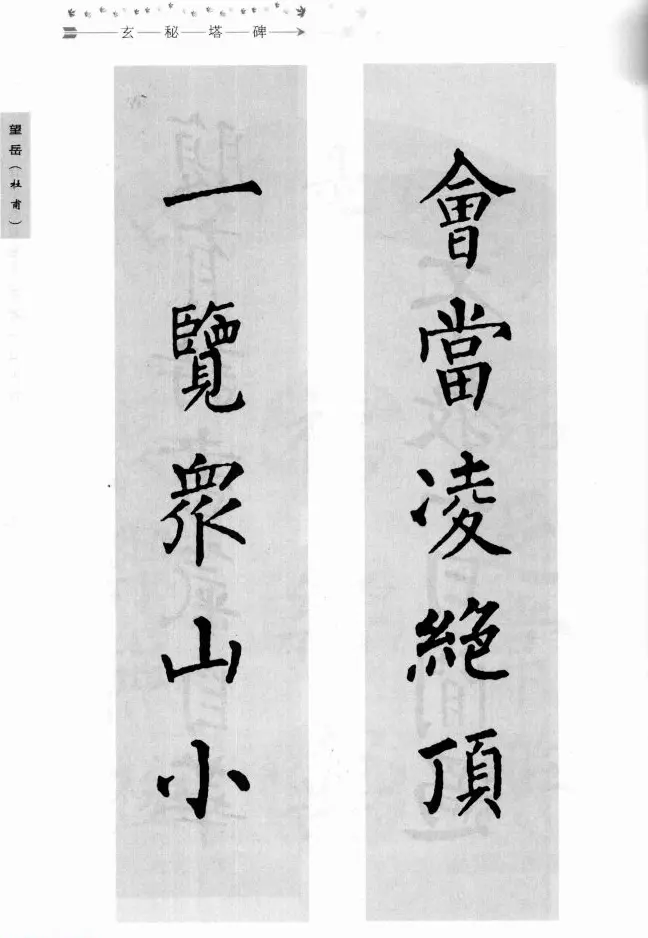 玄—秘—塔—碑
望岳（杜甫）
會當凌絕頂
一覽衆山小